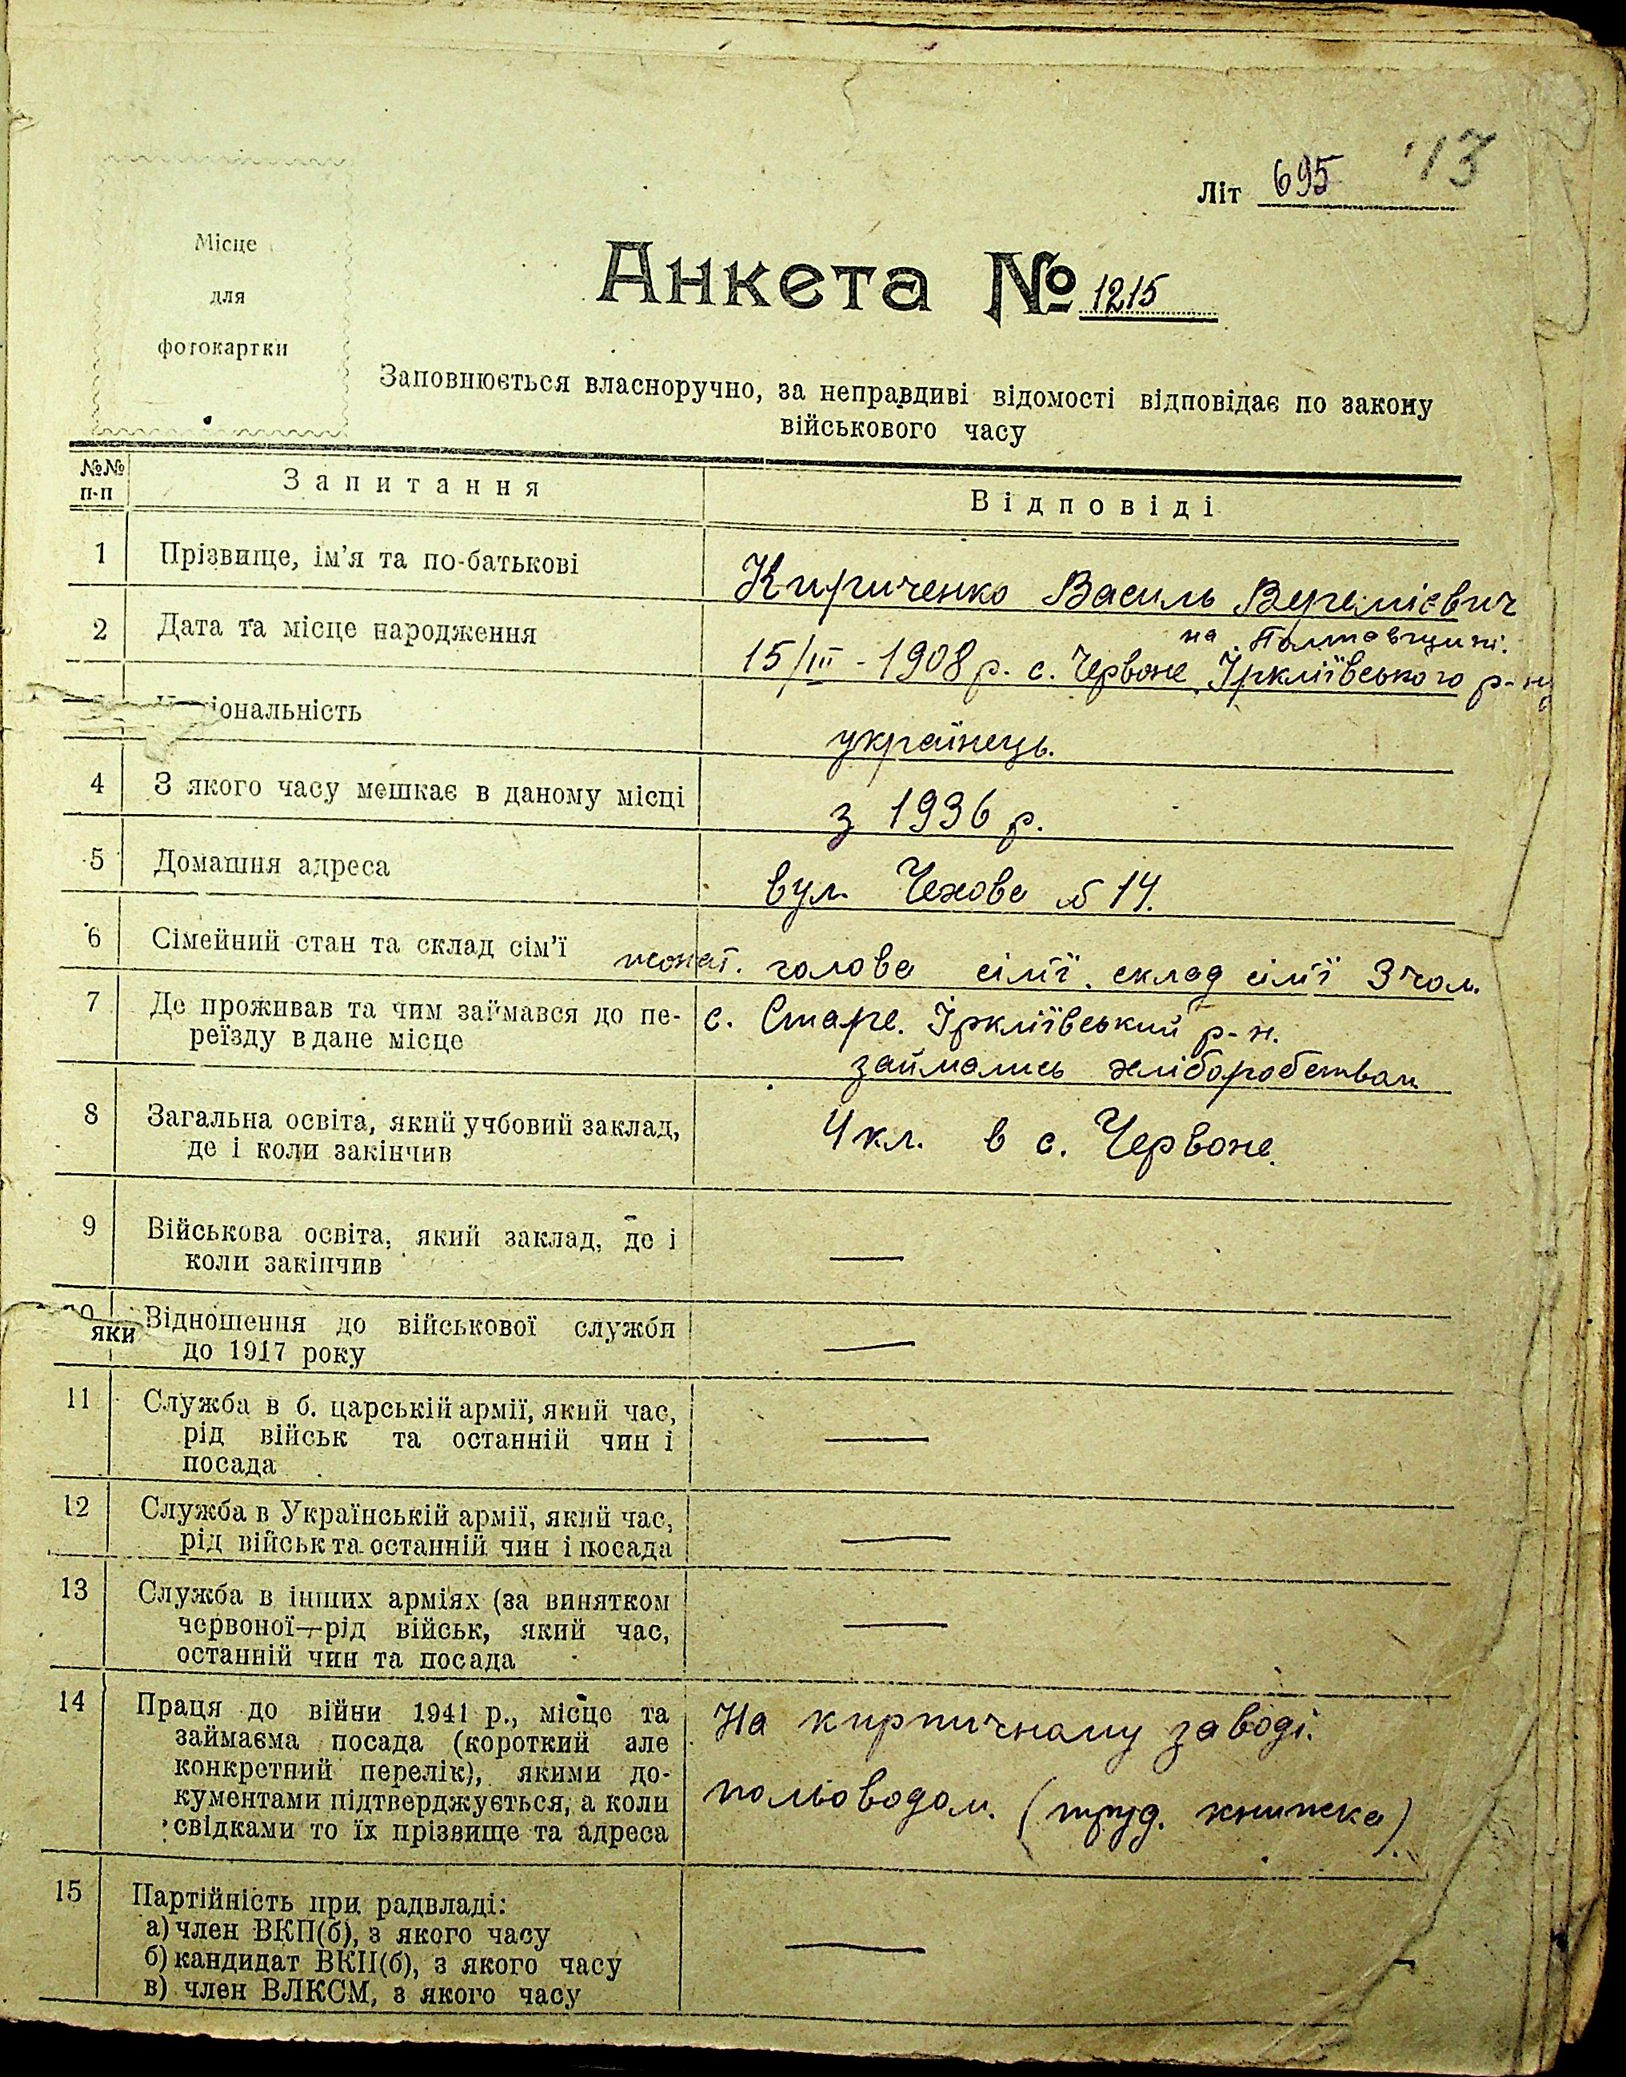 '13
Літ 695
Місце
для
фотокартки
Анкета № 1215
Заповнюється власноручно, за неправдиві відомості відповідає по закону
військового часу
№№ п-п Запитання Відповіді
1 Прізвище, ім'я та по-батькові Кириченко Василь Веремієвич
на Полтавщині.
2 Дата та місце народження 15/III - 1908 р. с. Червоне Іркліївського р-ну
іональність українець.
4 З якого часу мешкає в даному місці з 1936 р.
5 Домашня адреса вул. Чехова № 14.
6 Сімейний стан та склад сім'ї жонат. голова сім'ї. склад сім'ї 3 чол.
7 Де проживав та чим займався до пе- с. Старе. Іркліївський р-н.
реїзду в дане місце займались хліборобством
8 Загальна освіта, який учбовий заклад, 4 кл. в с. Червоне.
де і коли закінчив
9 Військова освіта, який заклад, де і
коли закінчив —
Відношення до військової служби
яки до 1917 року —
11 Служба в б. царській армії, який час,
рід військ та останній чин і —
посада
12 Служба в Українській армії, який час,
рід військ та останній чин і посада —
13 Служба в інших арміях (за винятком
червоної—рід військ, який час, —
останній чин та посада
14 Праця до війни 1941 р., місце та На кирпичному заводі.
займаєма посада (короткий але
конкретний перелік), якими до-
кументами підтверджується, а коли польоводом. (труд. книжка).
свідками то їх прізвище та адреса
15 Партійність при радвладі:
а) член ВКП(б), з якого часу —
б) кандидат ВКП(б), з якого часу
в) член ВЛКСМ, з якого часу